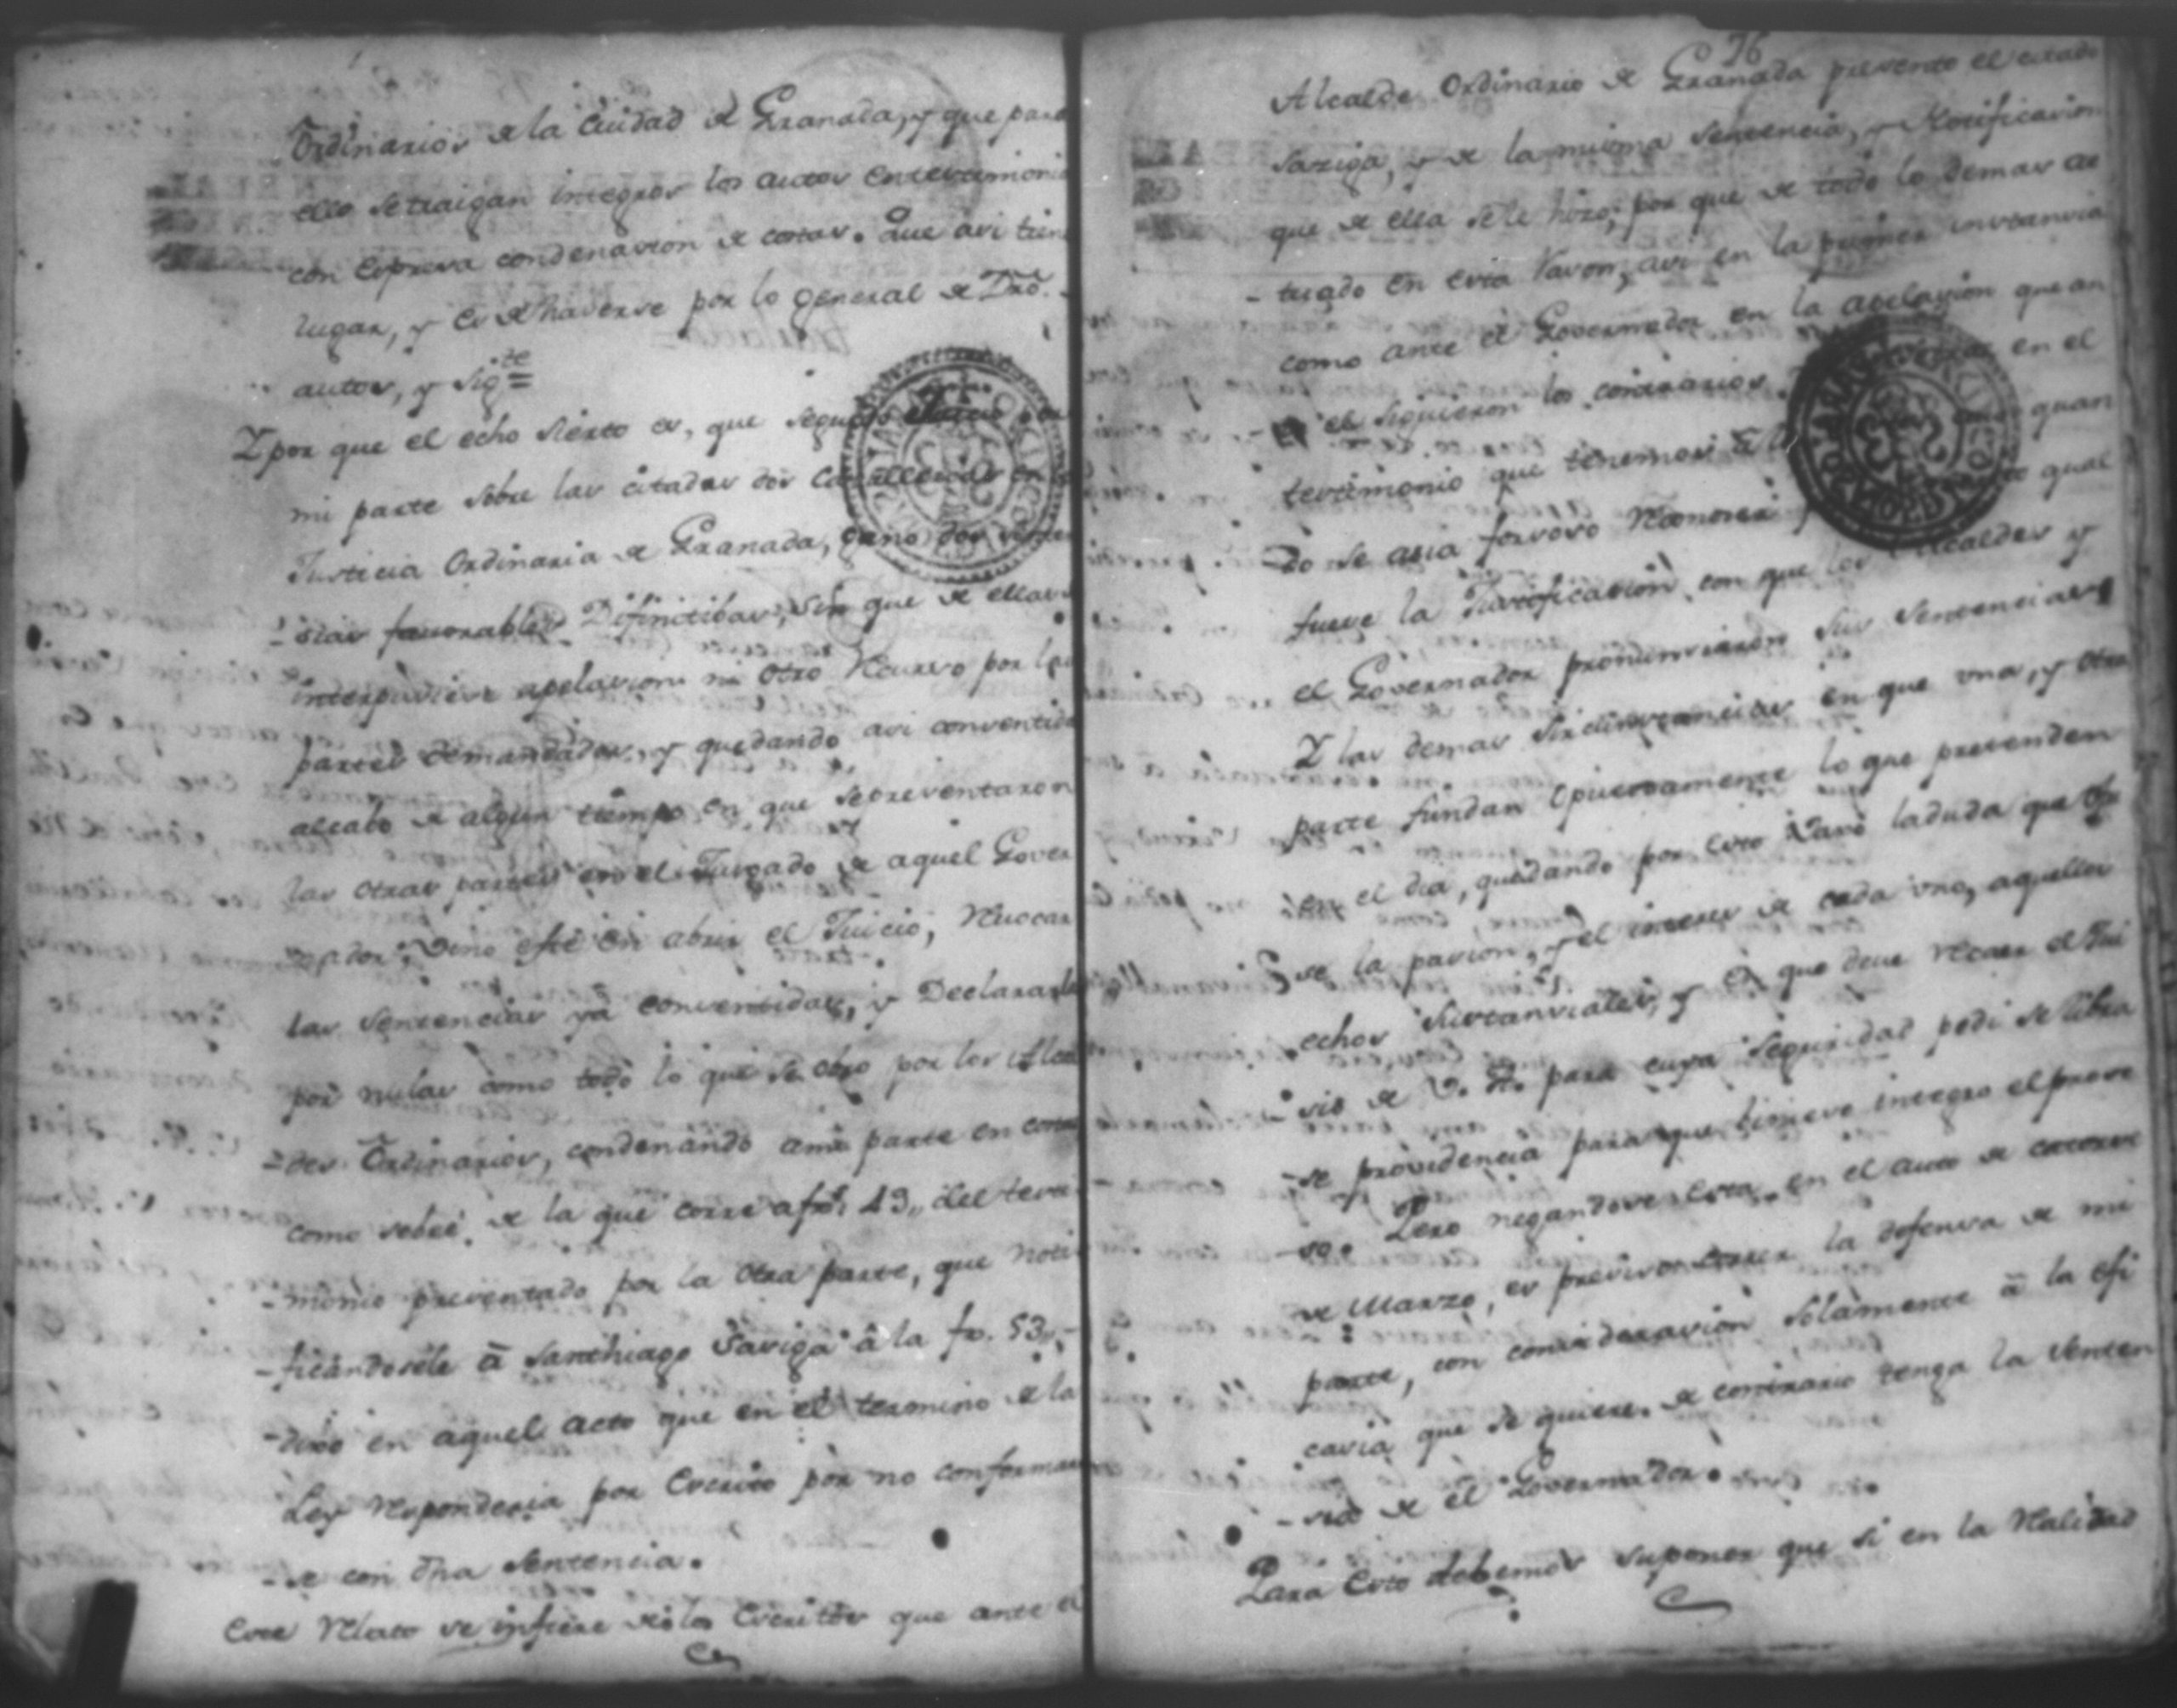 Ordinarios de la Ciudad de Granada, y que para
ello se traigan integros los autos en testimonio
con expresa condenasion de costas. Que asi tiene
lugar, y es de haserse por lo general de Dro.
autos, y sigte =
Y por que el echo sierto es, que seguido
mi parte sobre las citadas dos Cavallerias en
Justicia Ordinaria de Granada, gano dos senten
sias favorables Difinitibas, sin que de ellas
interpusiese apelasion ni otro Recurso por las
partes demandadas, y quedando asi consentida
al cabo de algun tiempo en que se presentaron
las otras partes en el Jusgado de aquel Gover
nador, vino este en abrir el Juicio, Revocar
las Sentencias ya consentidas, y Declararlas
por nulas como todo lo que se obro por los Alcal
des Ordinarios, condenando a mi parte en costas
como se be de la que corre a fs. 43,, del testi
monio presentado por la otra parte, que noti
ficandosele á Santhiago Sariga â la fs. 53,,
dixo en aquel acto que en el termino de la
Ley Responderia por Escrito por no conformar
se con dha Sentencia.
Este Relato se infiere de los Escritos que ante el
76
Alcalde Ordinario de Granada presento el citado
Sariga, y de la misma Sentencia, y Notificasion
que de ella se le hizo; por que de todo lo demas ac
tuado en esta Rason, asi en la primer instansia
como ante el Governador en la apelasion que an
te el siguieron los contrarios, en el
testimonio que tenemos quan
do se asia forsoso Reconoser qual
fuese la Justificasion con que los Alcaldes y
el Governador pronunsiaron sus Sentensias
Y las demas sircunstancias en que una, y otra
parte fundan opuestamente lo que pretenden
en el dia, quedando por esto la duda que
se la pasion, y el interes de cada uno, aquellos
echos sustansiales, y en que deve Recaer el Jui
sio de V. A. para cuya seguridad pedi se libra
se providencia para que biniese integro el prose
so. Pero negandose esta en el auto de catorse
de Marzo, es presiso correr la defensa de mi
parte, con considerasion solamente â la efi
casia que se quiere de contrario tenga la senten
sia de el Governador.
Para esto debemos suponer que si en la Realidad